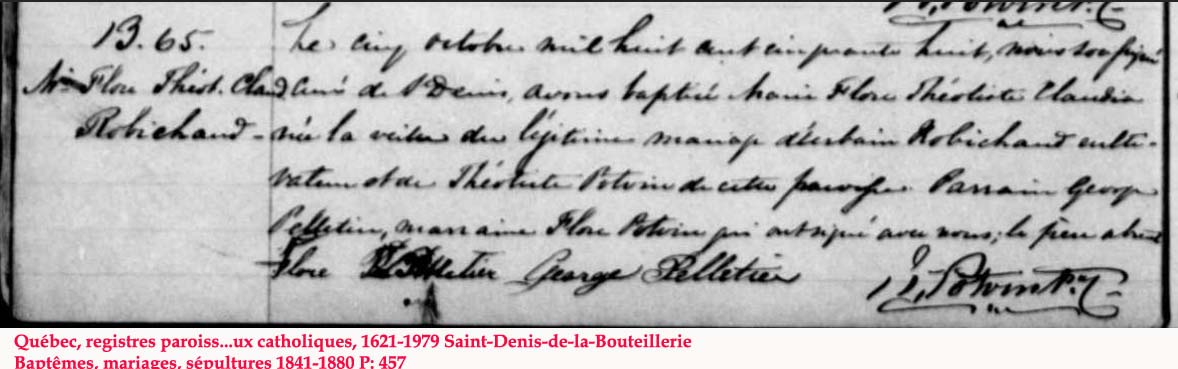 B. 65.
Mie Flore Théot. Claud
Robichaud -
Le cinq octobre mil huit cent cinquante huit, nous soussigné
Curé de St Denis, avons baptisé Marie Flore Théotiste Claudia
née la veille du légitime mariage d'Urbain Robichaud culti-
vateur et de Théotiste Potvin de cette paroisse. Parrain George
Pelletier, marraine Flore Potvin qui ont signé avec nous; le père absent
Flore Pelletier George Pelletier
Potvin Ptre
Québec, registres paroiss...ux catholiques, 1621-1979 Saint-Denis-de-la-Bouteillerie
Baptêmes, mariages, sépultures 1841-1880 P: 457